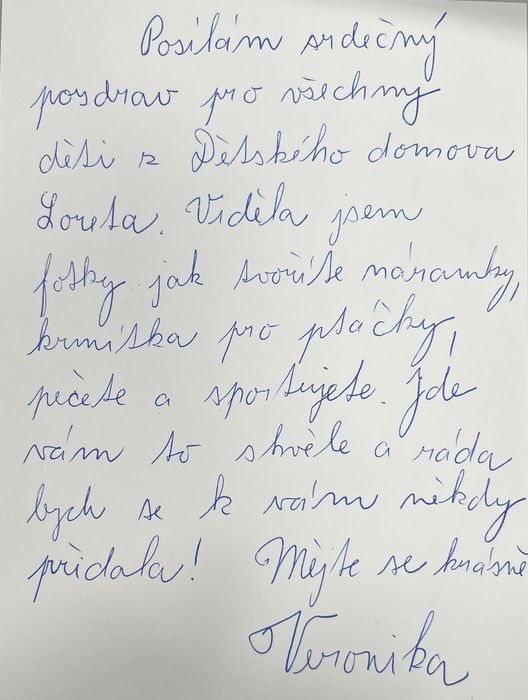 Posílám srdečný
pozdrav pro všechny
děti z Dětského domova
Loreta. Viděla jsem
fotky jak tvoříte náramky,
krmítka pro ptáčky,
pečete a sportujete. Jde
vám to skvěle a ráda
bych se k vám někdy
přidala! Mějte se krásně
Veronika